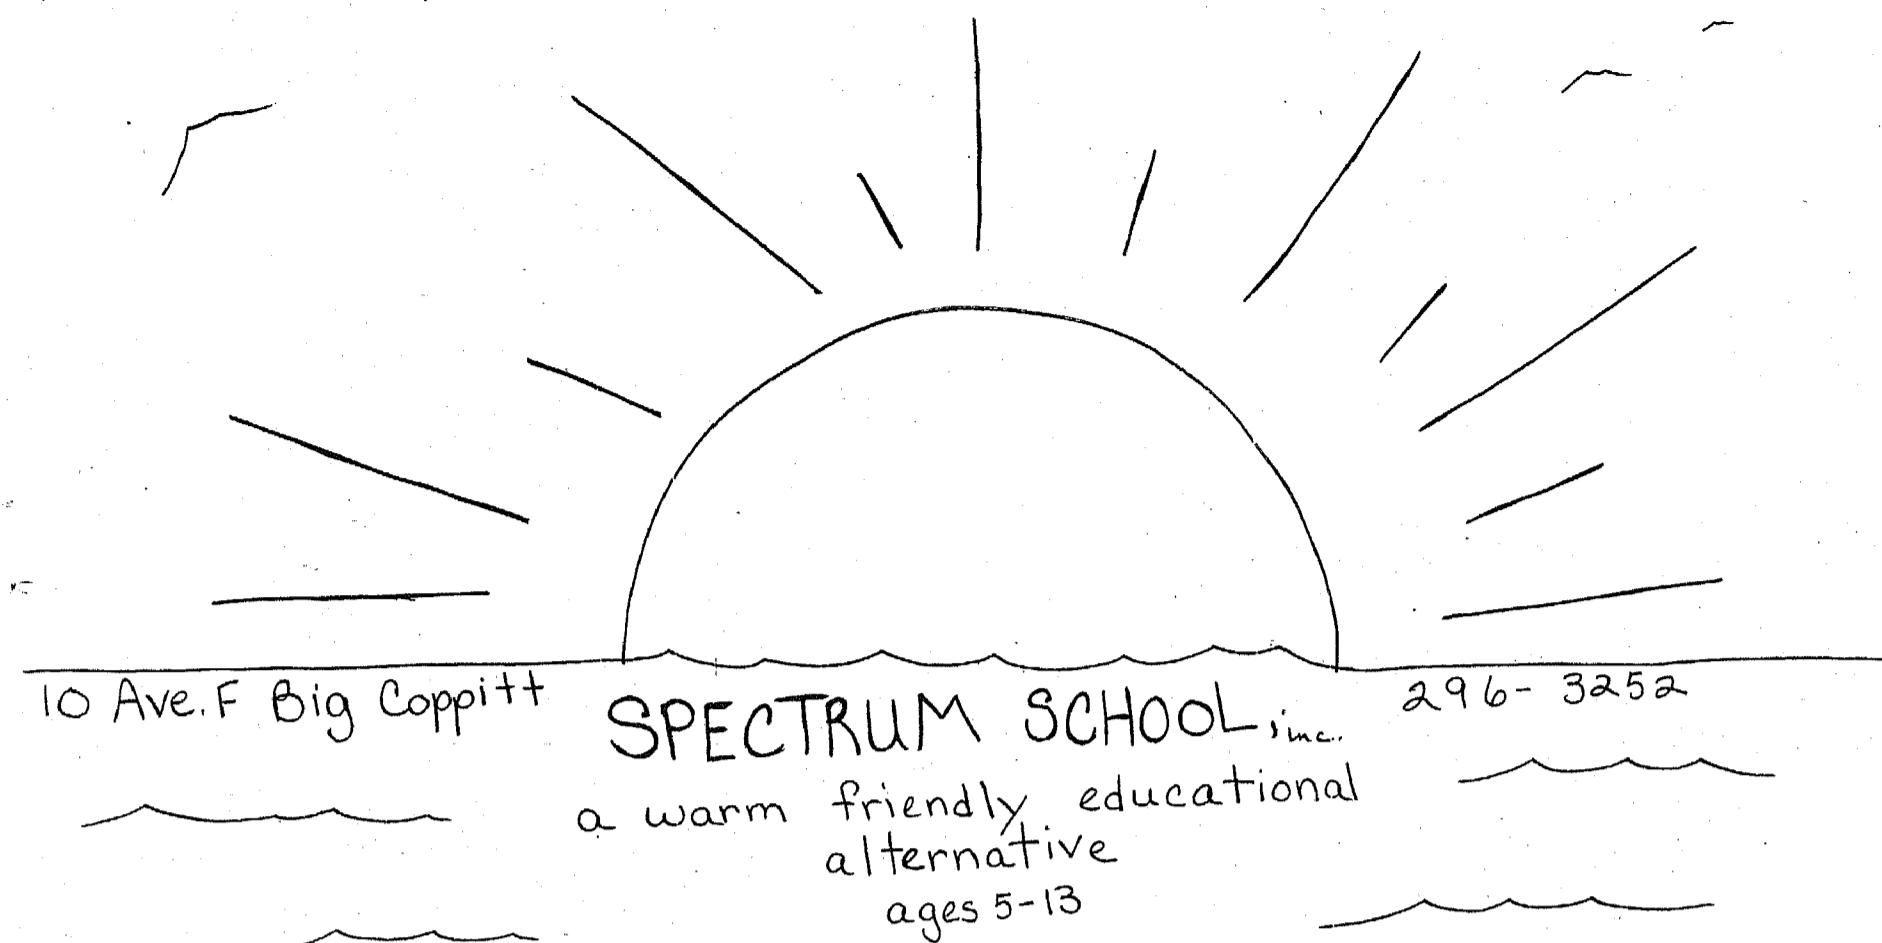 10 Ave. F Big Coppitt
SPECTRUM SCHOOL, inc.
296-3252
a warm friendly educational
alternative
ages 5-13